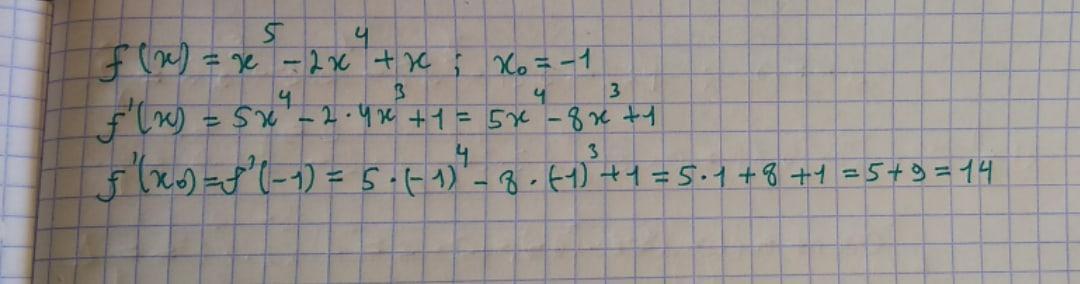 f(x) = x⁵ - 2x⁴ + x ; x₀ = -1
f'(x) = 5x⁴ - 2·4x³ + 1 = 5x⁴ - 8x³ + 1
f'(x₀) = f'(-1) = 5·(-1)⁴ - 8·(-1)³ + 1 = 5·1 + 8 + 1 = 5 + 9 = 14